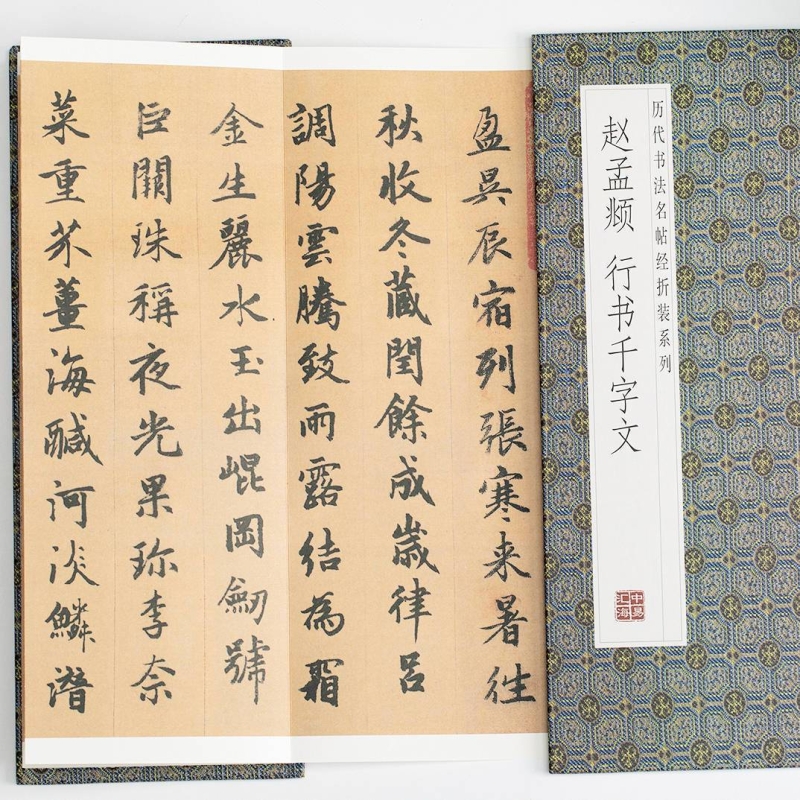 历代书法名帖经折装系列
赵孟𫖯 行书千字文
中易汇海
盈昃辰宿列張寒来暑往
秋收冬藏閏餘成歲律吕
調陽雲騰致雨露結為霜
金生麗水玉出崐岡劒號
巨闕珠稱夜光果珎李奈
菜重芥薑海醎河淡鱗潛